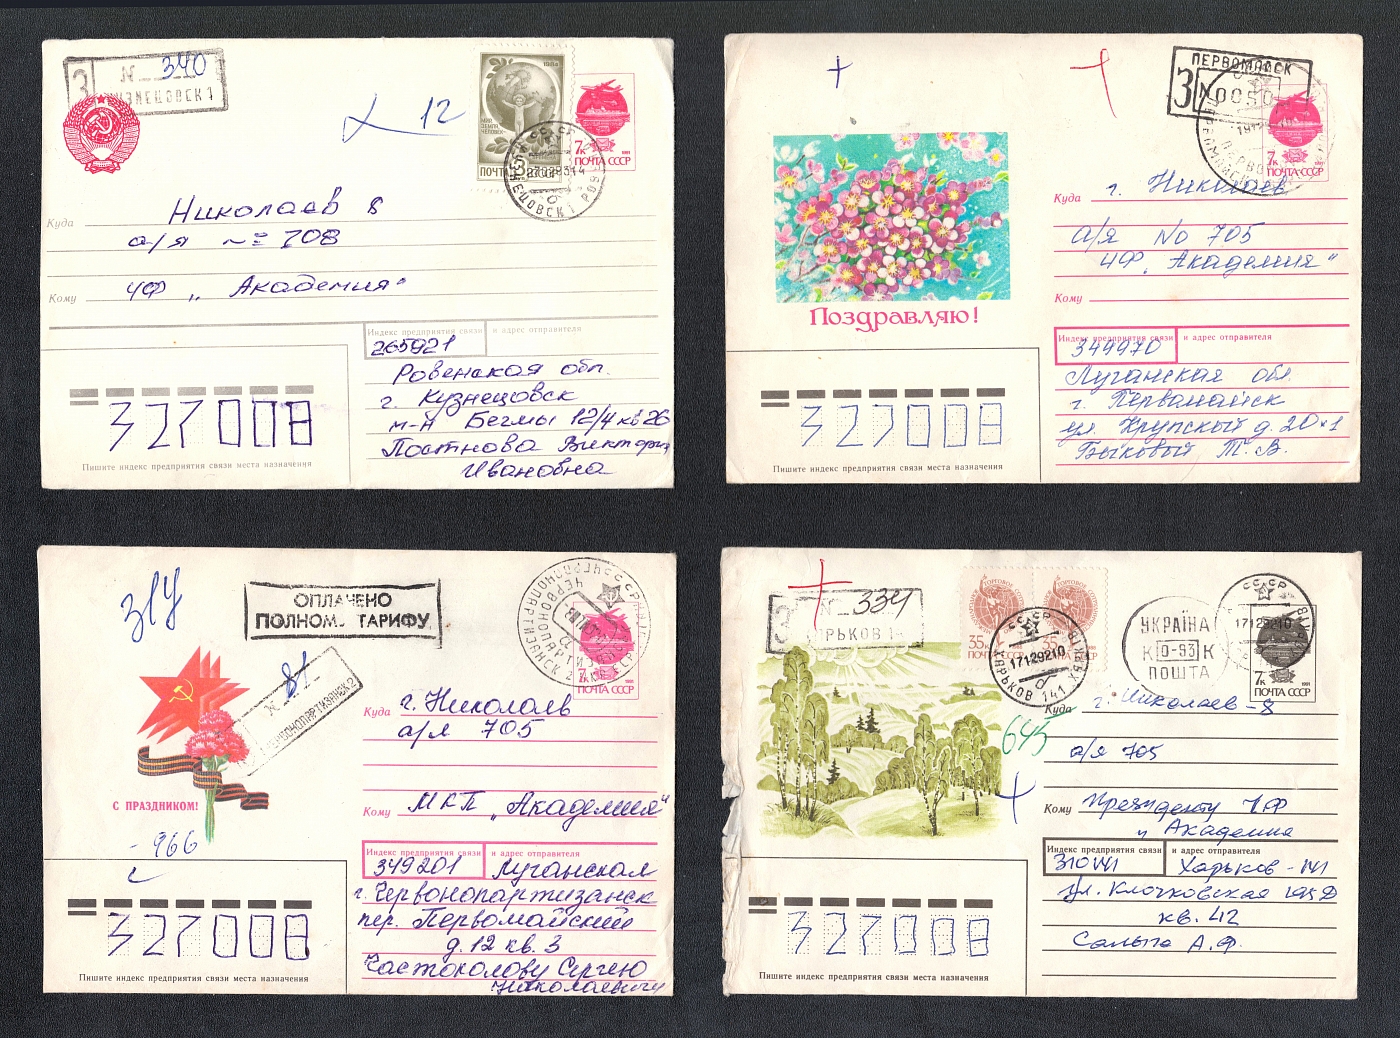 З
N 340
КУЗНЕЦОВСК 1
12
1985
МИР
ЗЕМЛЯ
ЧЕЛОВЕК
ПОЧТА СССР
7к
ПОЧТА СССР
1991
СССР
271292 14
КУЗНЕЦОВСК 1 РОВ
Куда Николаев 8
а/я № 708
Кому ЧФ „Академия"
Индекс предприятия связи и адрес отправителя
265921
Ровенская обл.
г. Кузнецовск
м-н 12/4 кв 26
Постнова Виктория
Ивановна
327008
Пишите индекс предприятия связи места назначения
ПЕРВОМАЙСК
З
N 0050
7к
ПОЧТА СССР
1991
Поздравляю!
Куда г. Николаев
а/я No 705
ЧФ „Академия"
Кому
Индекс предприятия связи и адрес отправителя
349970
Луганская обл.
г. Первомайск
ул. Крупской д. 20
Быковый Т. В.
327008
Пишите индекс предприятия связи места назначения
ОПЛАЧЕНО
ПОЛНОМ. ТАРИФУ
N 81
ЧЕРВОНОПАРТИЗАНСК 2
7к
ПОЧТА СССР
С ПРАЗДНИКОМ!
966
Куда г. Николаев
а/я 705
Кому МКП „Академия"
Индекс предприятия связи и адрес отправителя
349201 Луганская
г. Червонопартизанск
пер. Первомайский
д. 12 кв. 3
Частоколову Сергею
Николаевичу
327008
Пишите индекс предприятия связи места назначения
N 334
ХАРЬКОВ 1
35к
ПОЧТА СССР
35к
ПОЧТА СССР
СССР
17129210
ХАРЬКОВ 141 ХАРЬКІВ
УКРАЇНА
К 0-53 К
ПОШТА
СССР
17129210
7к
ПОЧТА СССР
1991
645
Куда г. Николаев-8
а/я 705
Кому Президенту ЧФ
„Академия
Индекс предприятия связи и адрес отправителя
310141 Харьков-141
ул. Клочковская
кв. 42
А. Ф.
327008
Пишите индекс предприятия связи места назначения